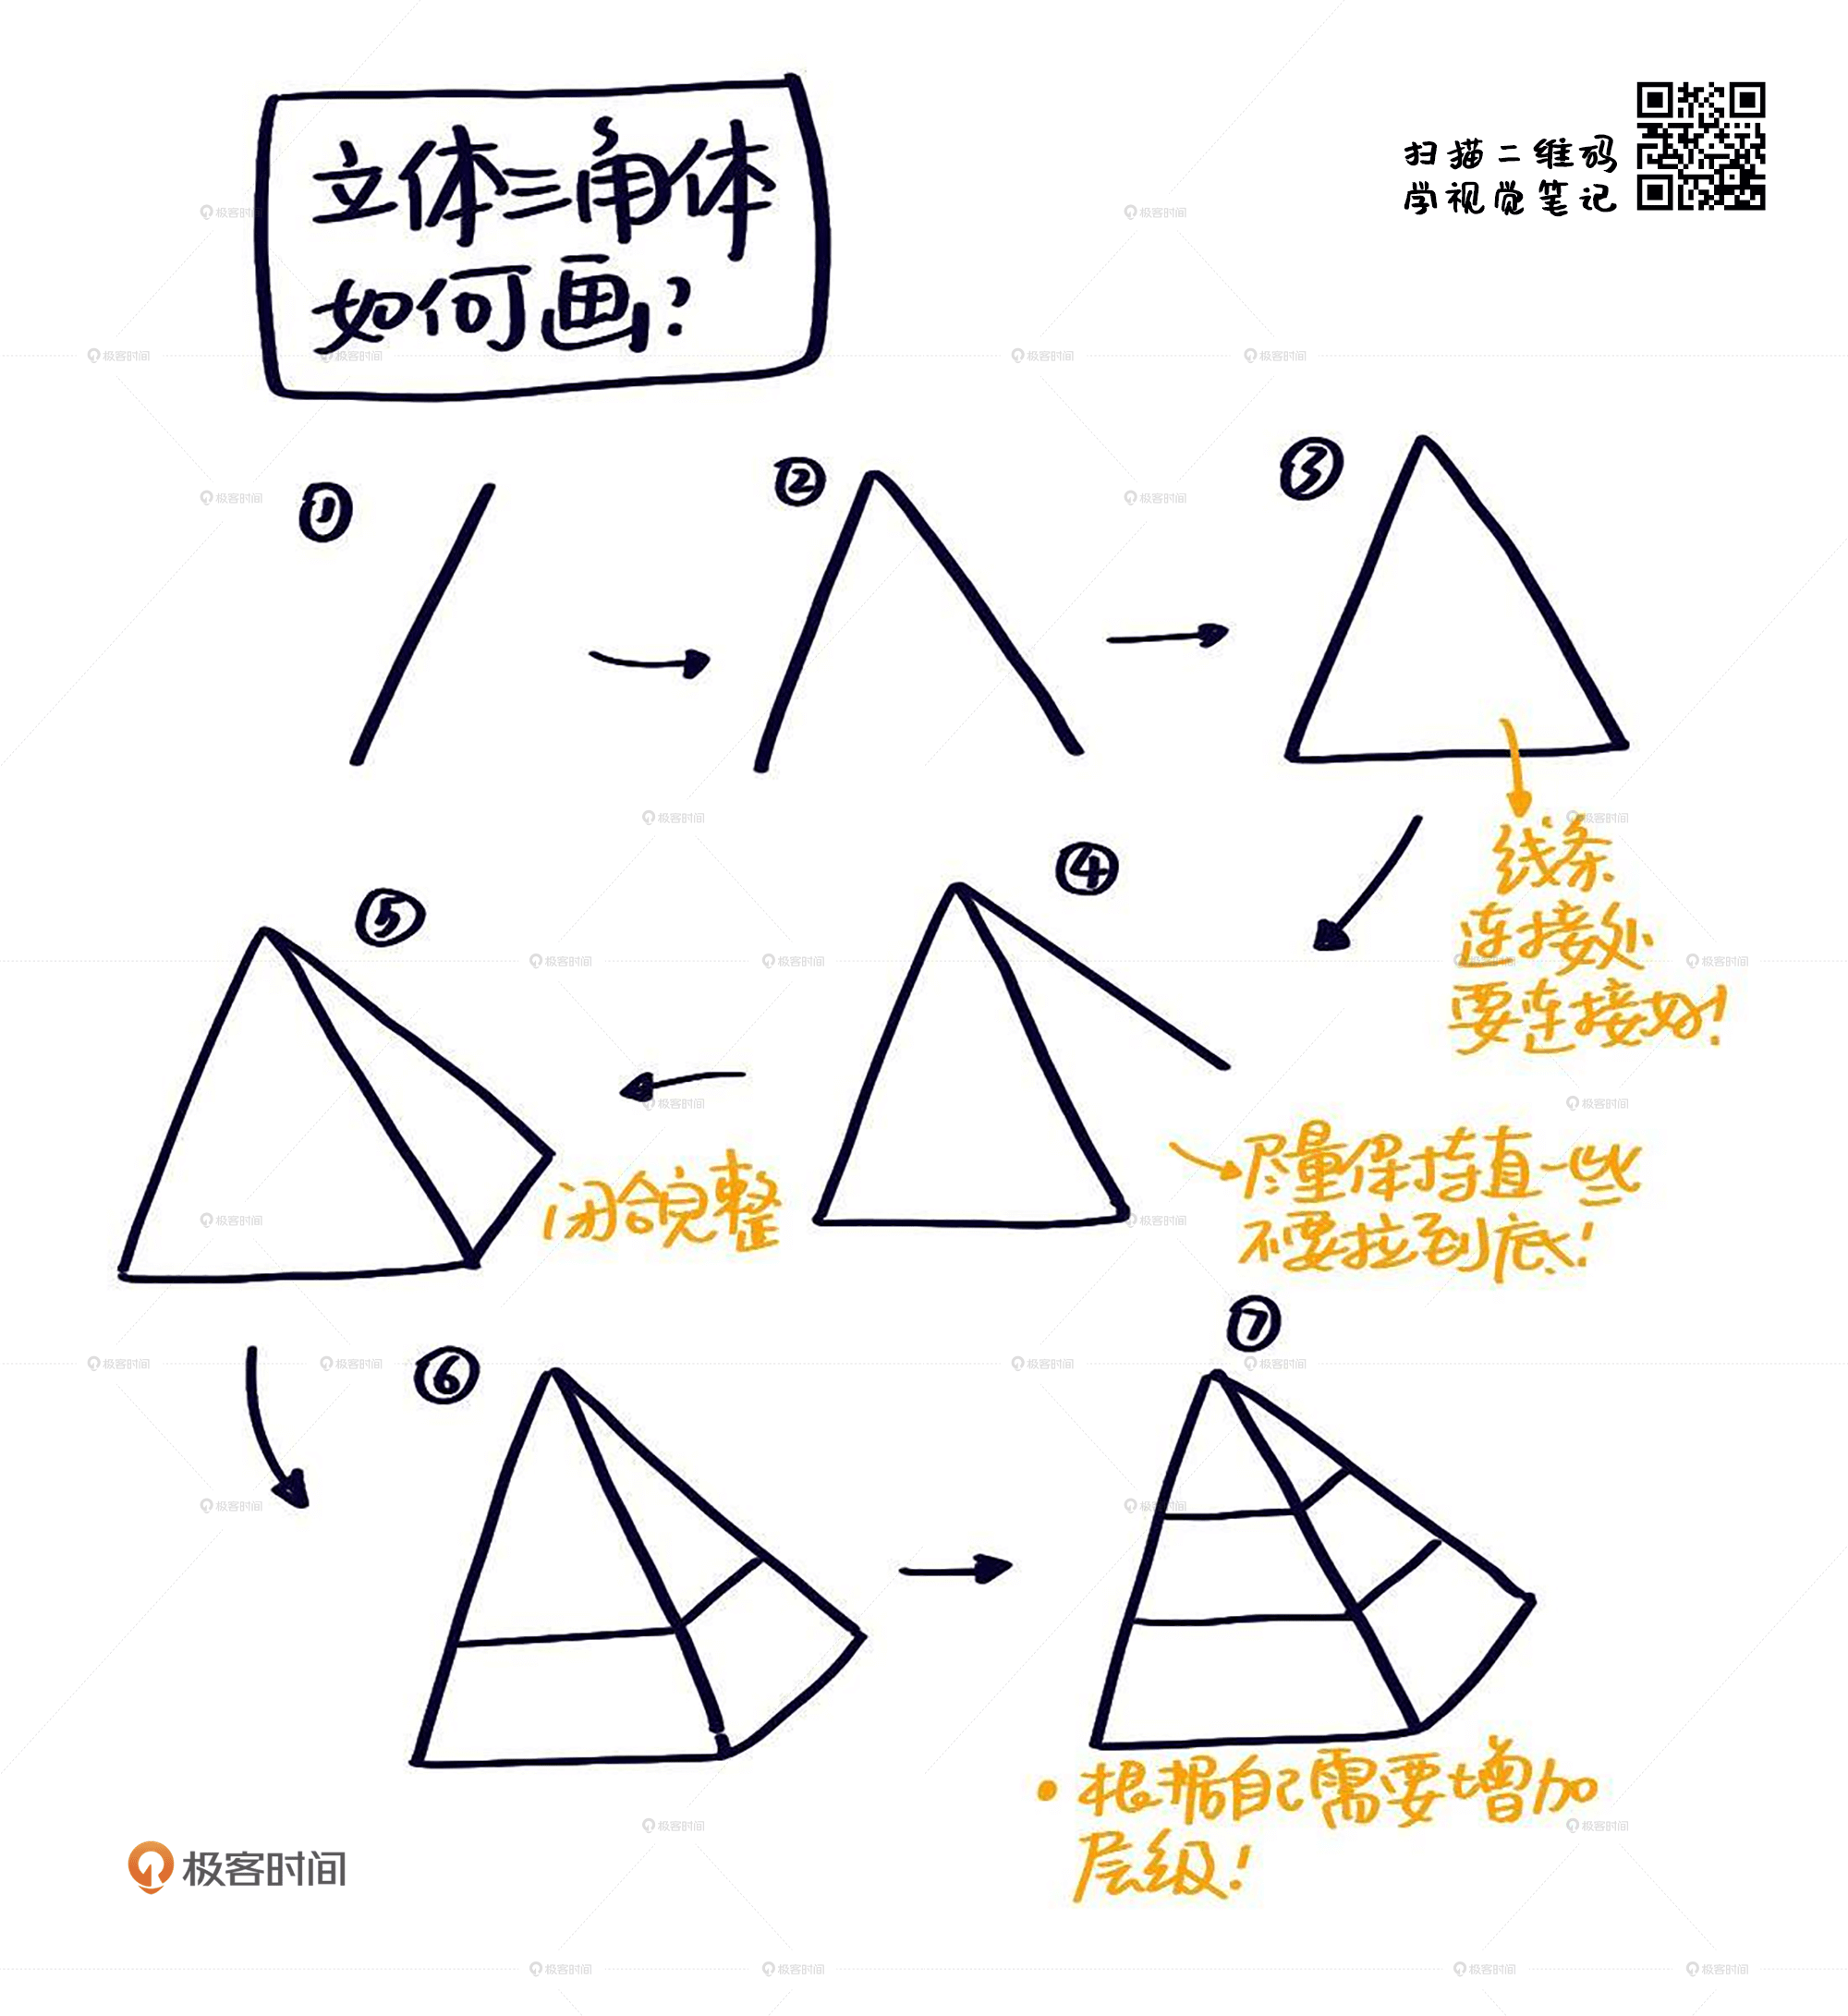 立体三角体
如何画?
扫描二维码
学视觉笔记
①
②
③
线条
连接处
要连接好!
④
尽量保持直一些
不要拉到底!
⑤
闭合完整
⑥
⑦
• 根据自己需要增加
层级!
极客时间